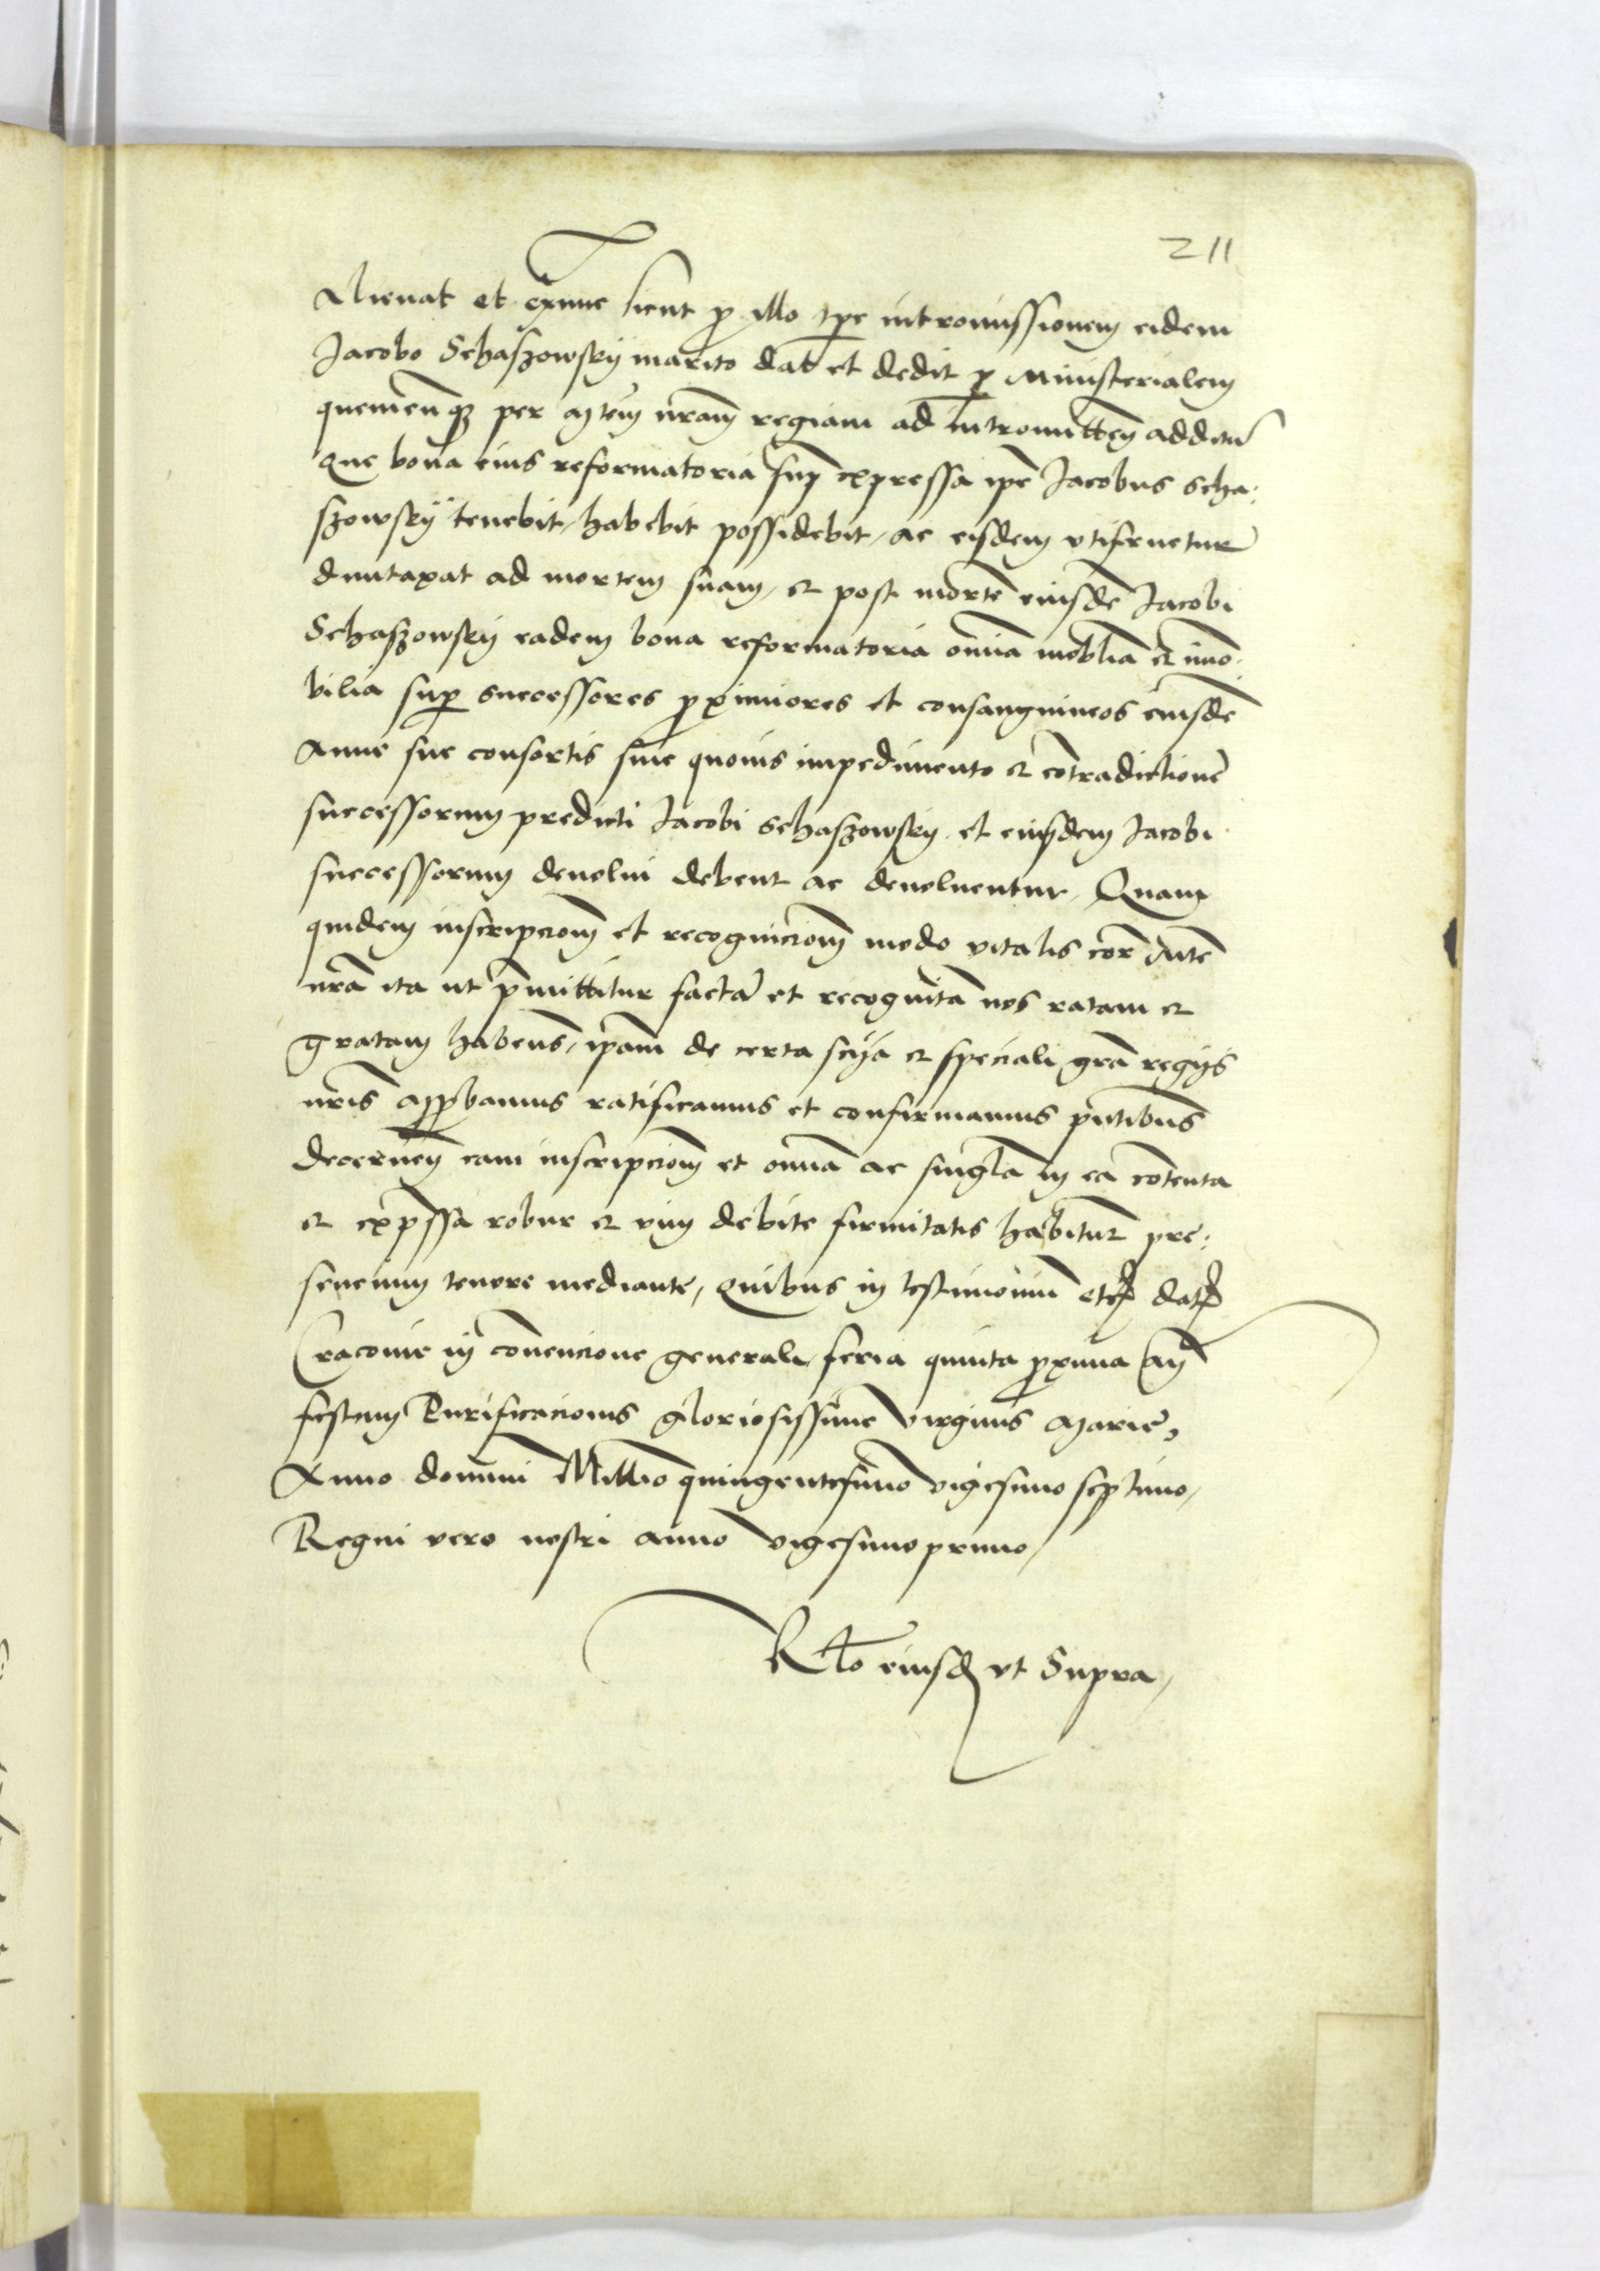 211
Alienat et exnunc sicut p illo tpe intromissionem eidem
Jacobo Schaszowsky marito dat et dedit p Ministerialem
quemcunq per Mtem nram regiam ad intromitten additu
Que bona eius reformatoria sup expressa ipe Jacobus Scha:
szowsky tenebit, habebit possidebit, ac eisdem vtifruetur
duntaxat ad mortem suam, et post morte eiusde Jacobi
Schaszowsky eadem bona reformatoria omia moblia et imo.
bilia sup successores pximiores et consanguineos eiusde
Anne sue consortis sine quouis impedimento et cotradictione
successorum predicti Jacobi Schaszowsky et eiusdem Jacobi
successorum deuolui debent ac deuoluentur. Quam
quidem inscripcionem et recognicionem modo vitalis cor Mte
nra ita ut pmittitur facta et recognita nos ratam et
gratam habens, ipam de certa scia et speciali gra regijs
nris appbamus ratificamus et confirmamus pntibus
decernen eam inscripcionem et omia ac singla in ea cotenta
et expssa robur et vim debite firmitatis habitur pre:
sencium tenore mediante, Quibus in testimonium etc dat
Cracouie in couencione generali, feria quinta pxima an
festum Purificacionis gloriosissime virginis Marie,
Anno domini Millio quingentesimo vigesimo septimo,
Regni vero nostri anno vigesimoprimo,
Rlto eiusd vt Supra,